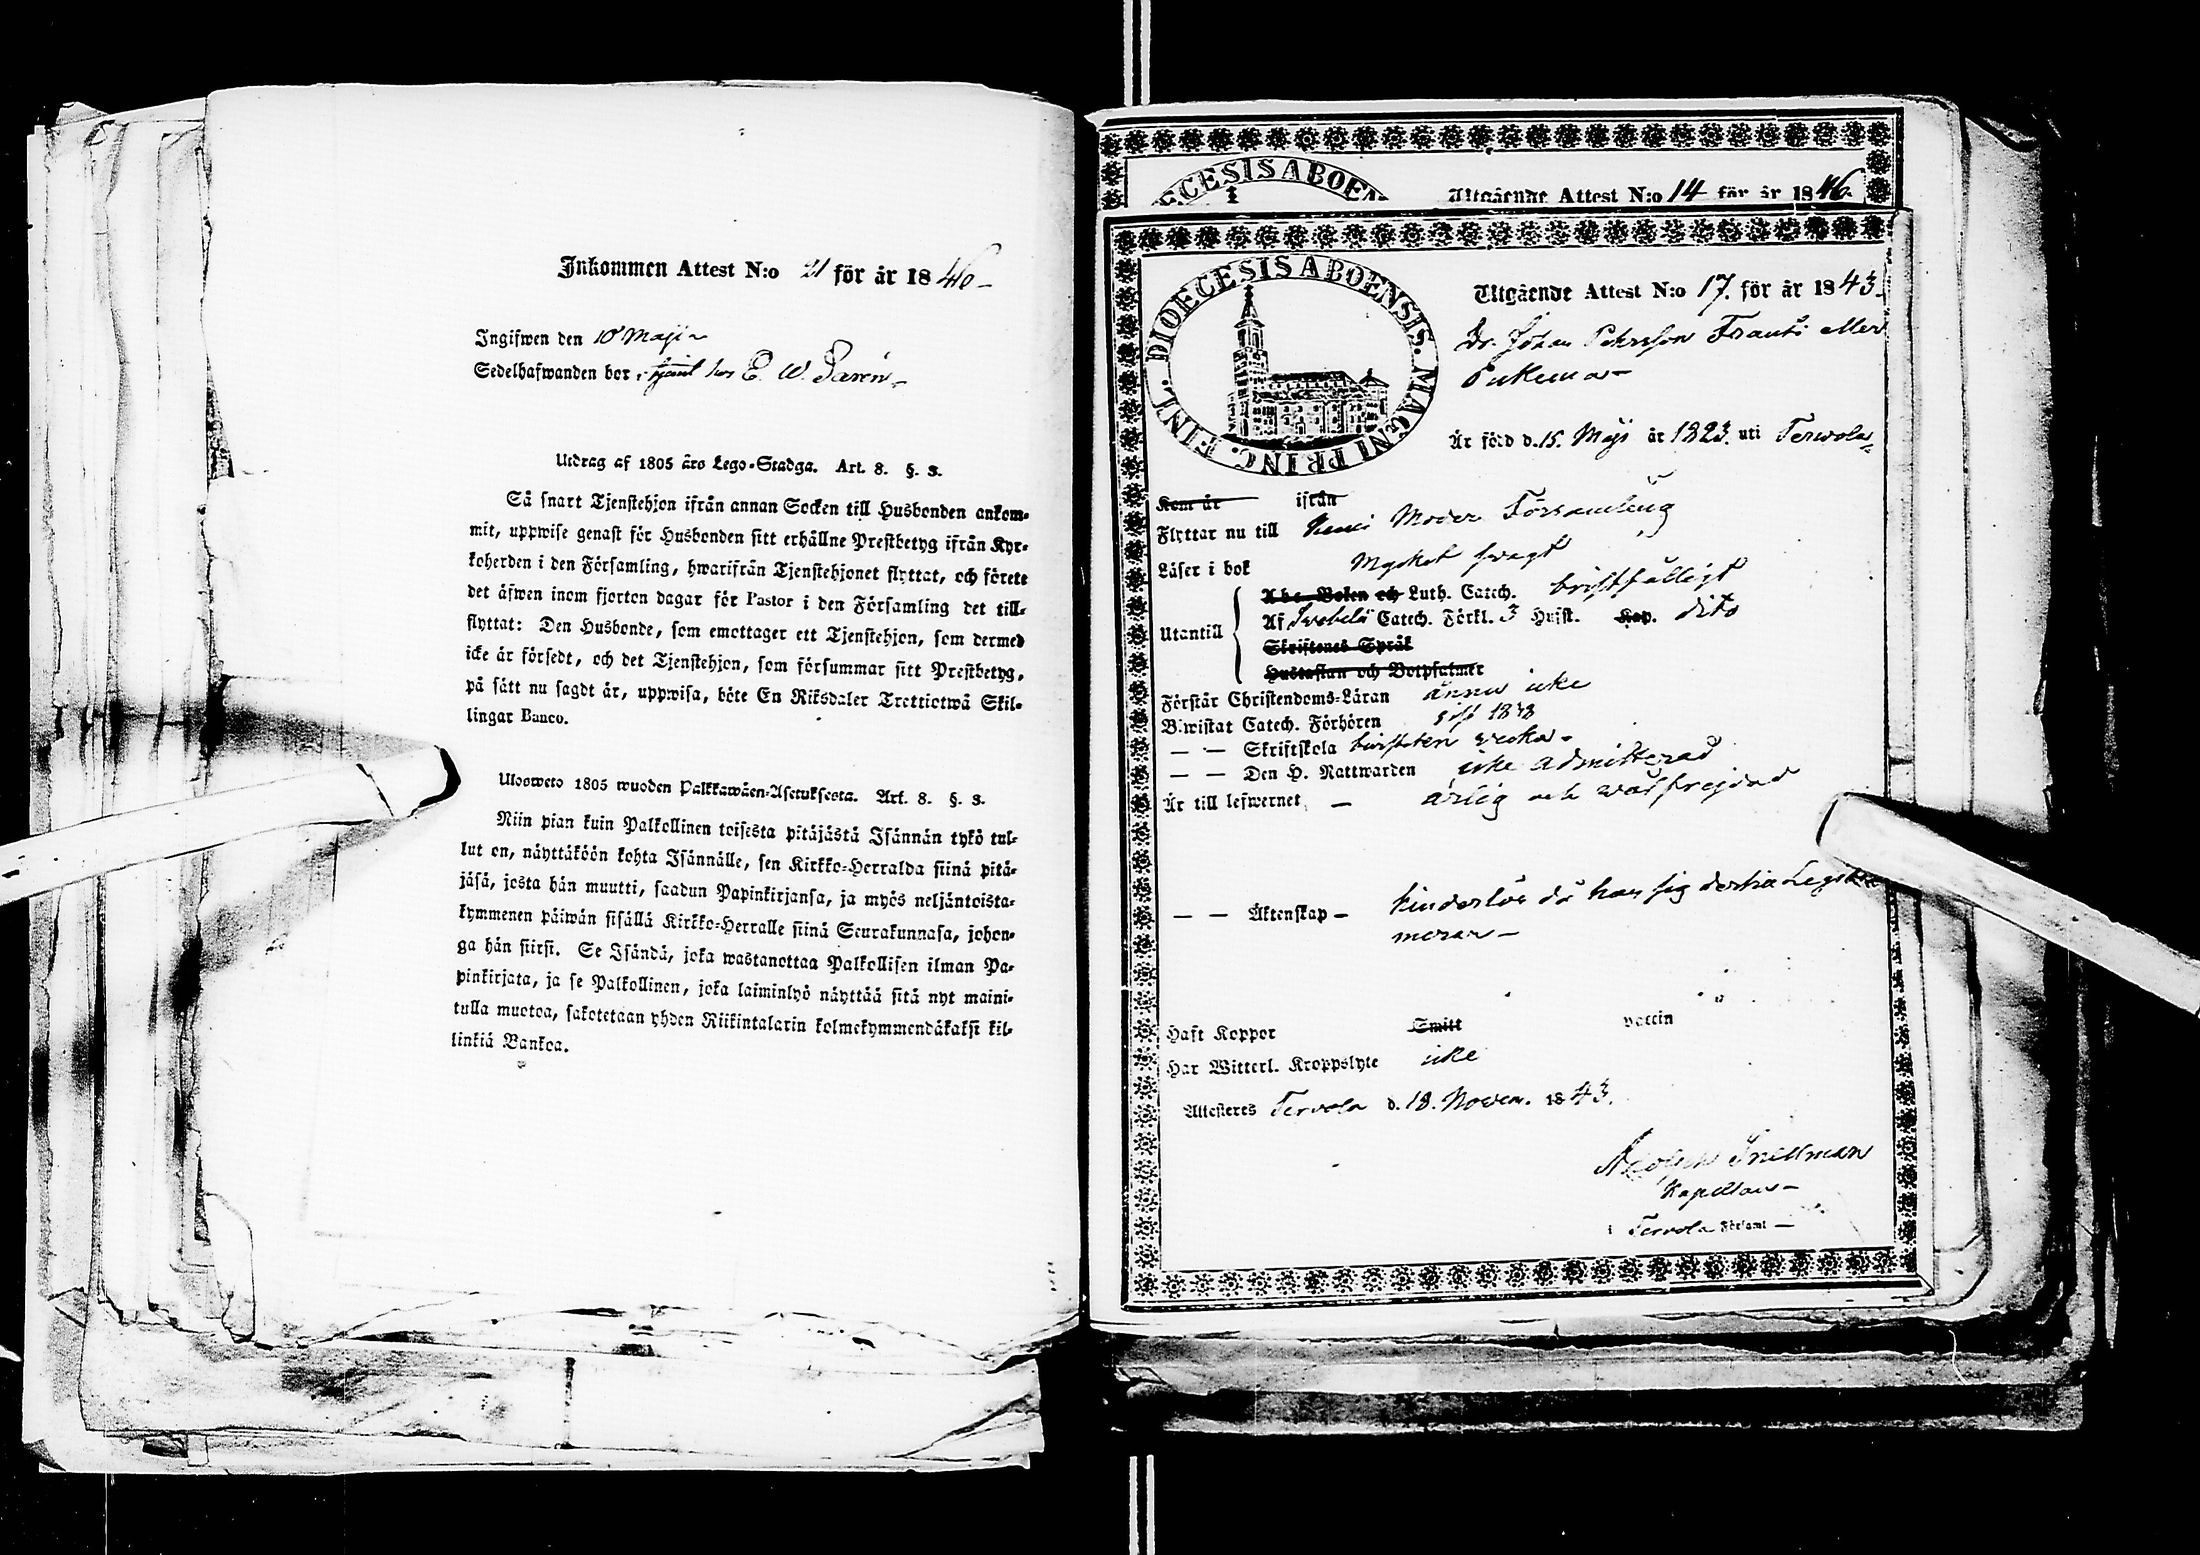 Inkommen Attest N:o 21 för år 1846
Ingifwen den 10 Maji
Sedelhafwanden bor hos E. W.
Utdrag af 1805 års Lego-Stadga. Art. 8. §. 3.
Så snart Tjenstehjon ifrån annan Socken till Husbonden ankom-
mit, uppwise genast för Husbonden sitt erhållne Prestbetyg ifrån Kyr-
koherden i den Församling, hwarifrån Tjenstehjonet flyttat, och förete
det äfwen inom fjorton dagar för Pastor i den Församling det till-
flyttat: Den Husbonde, som emottager ett Tjenstehjon, som dermed
icke är försedt, och det Tjenstehjon, som försummar sitt Prestbetyg,
på sätt nu sagdt är, uppwisa, böte En Riksdaler Trettiotwå Skil-
lingar Banco.
Ulosweto 1805 wuoden Palkkawäen-Asetuksesta. Art. 8. §. 3.
Niin pian kuin Palkollinen toisesta pitäjästä Isännän tykö tul-
lut on, näyttäköön kohta Isännälle, sen Kirkko-Herralda siinä pitä-
jäsä, josta hän muutti, saadun Papinkirjansa, ja myös neljäntoista-
kymmenen päiwän sisällä Kirkko-Herralle siinä Seurakunnasa, johon-
ga hän siirsi. Se Isändä, joka wastanottaa Palkollisen ilman Pa-
pinkirjata, ja se Palkollinen, joka laiminlyö näyttää sitä nyt maini-
tulla muotoa, sakotetaan yhden Riikintalarin kolmekymmendäkaksi kil-
linkiä Bankoa.
ECESIS ABOEN
Utgående Attest N:o 14 för år 1846.
DIOECESIS ABOENSIS. MAGNI PRINC. FINL.
Utgående Attest N:o 17. för år 1843.
Dr. Johan Pehrsson Frants eller
Är född d. 15. Maji år 1823. uti Terwola
Kom år ifrån
Flyttar nu till Kemi Moder Församling
Läser i bok Mycket swagt
Utantill
Abc-Boken och Luth. Catech. bristfälligt
Af Swebelii Catech. Förkl. 3 Hufst. Kap. dito
Skriftenes Språk
Hustaflan och Botpsalmer
Förstår Christendoms-Läran ännu icke
Bewistat Catech. Förhören sist 1838
— — Skriftskola
— — Den H. Nattwarden icke admitterad
Är till lefwernet — ärlig och wälfrejdad
— — Äktenskap — hinderlös då han sig dertill
Haft Koppor Smitt vaccin
Har Witterl. Kroppslyte icke
Attesteres Tervola d. 18. Novem. 1843.
Adolph Snellman
Kapellan
i Tervola Förfaml